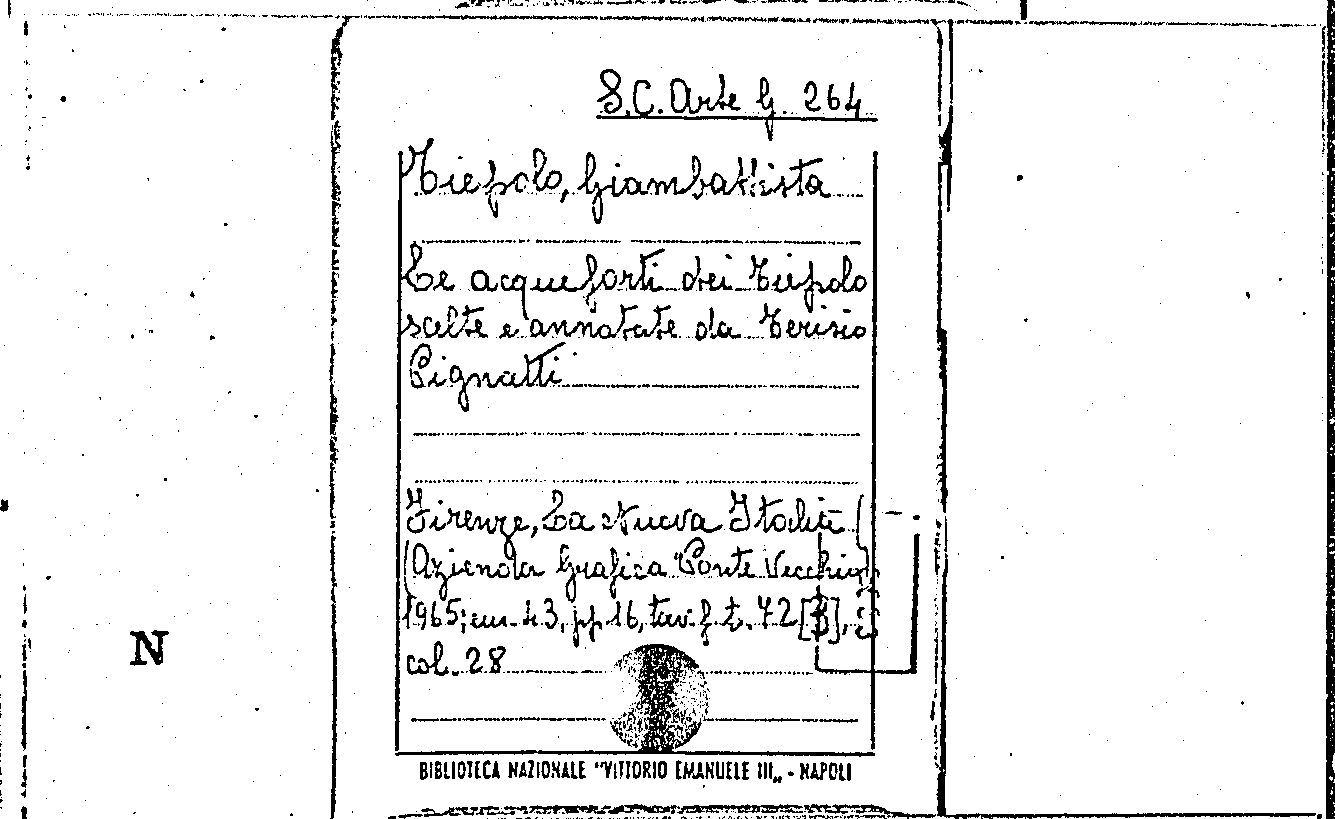 S.C. Arte G. 264
Tiepolo, Giambattista
Le acqueforti dei Tiepolo
scelte e annotate da Terisio
Pignatti
Firenze, La Nuova Italia (
(Azienda Grafica "Ponte Vecchio)
1965; cm. 43, pp 16, tav. f. t. 72 [3],
col. 28
N
BIBLIOTECA NAZIONALE "VITTORIO EMANUELE III„ - NAPOLI